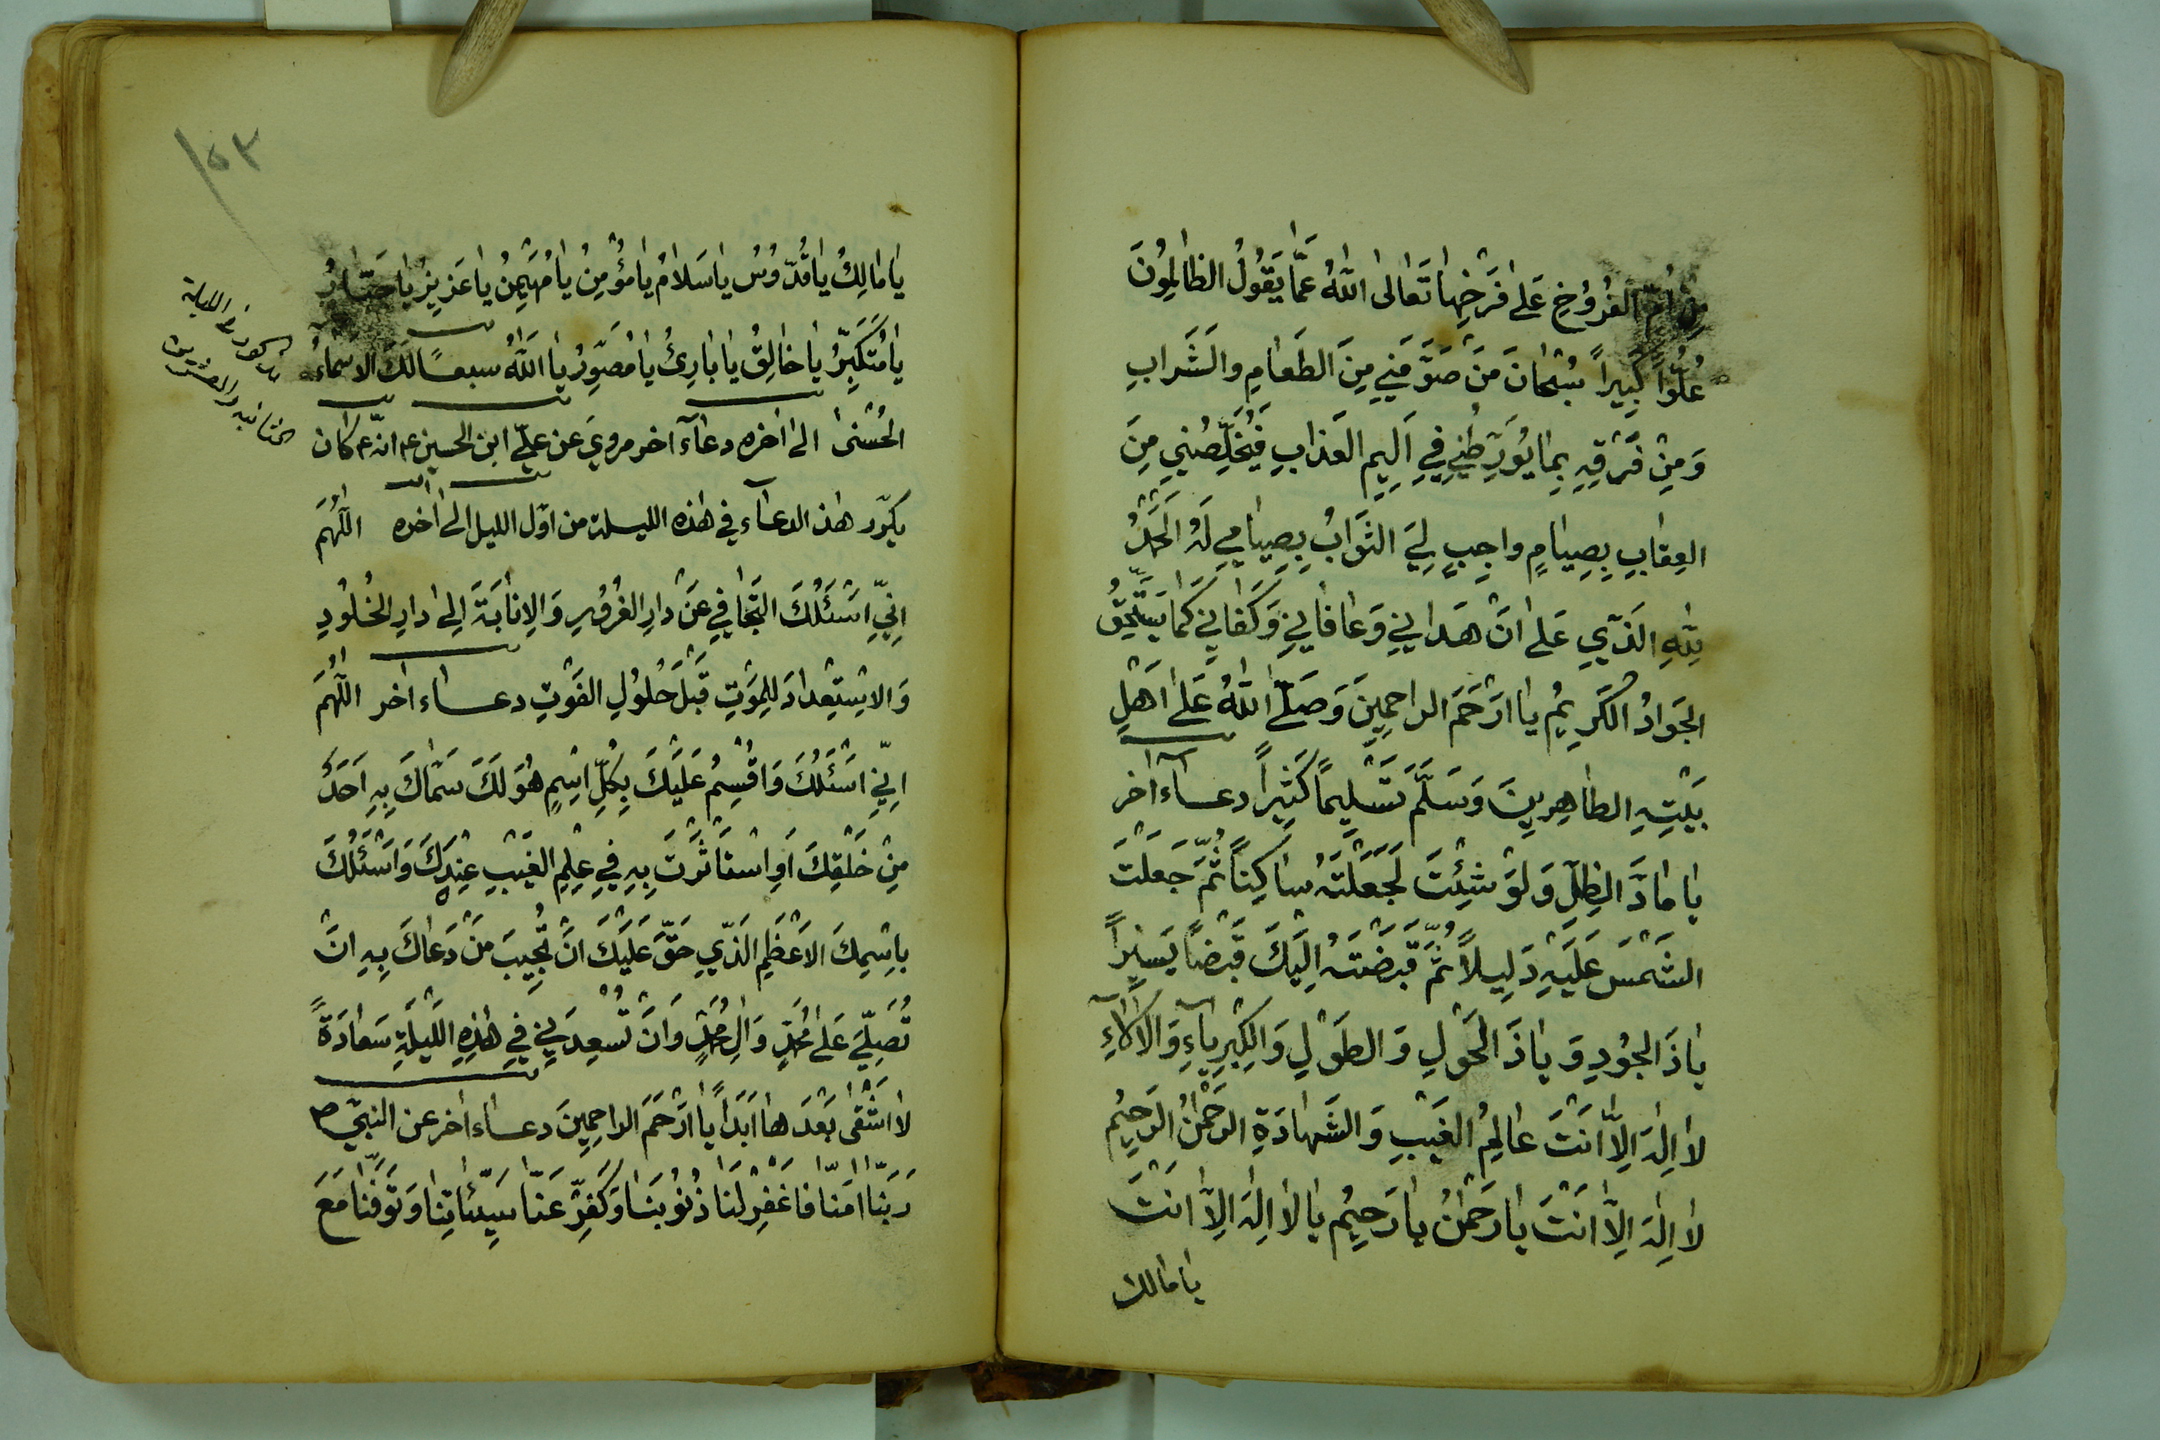 مِنْ اُمِّ الْفُرُوخِ عَلىٰ فَرْخِهاٰ تَعٰالىٰ اللّٰهُ عَمّٰا يَقُولُ الظاٰلِموُنَ
عُلُوّاً كَبيراً سُبْحٰانَ مَنْ صَوَّمَني مِنَ الطَعٰامِ والشَرابِ
وَمِنْ فَرَقِهِ بِمٰا يُوَرِّطُني فِي اَليمِ العَذابِ فَيُخَلِّصُني مِنَ
العِقابِ بِصِيٰامٍ واجِبٍ لِيَ الثَوَابُ بِصِيٰامي لَهُ الْحَمْدُ
لِلّٰهِ الَذّي عَلىٰ اَنْ هَدانِي وَعٰافٰانِي وَكَفٰانِي كَمٰا يَسْتَحِقُّ
الجَوَادُ الكَرِيمُ يٰا ارْحَمَ الراحِمينَ وَصَلَّى اللّٰهُ عَلىٰ اَهْلِ
بَيْتِهِ الطٰاهِرينَ وَسَلَّمَ تَسْليماً كَثيراً دعآء آخر
يٰا مٰادَّ الظِلِّ وَلَوْ شِئْتَ لَجَعَلْتَهُ سٰاكِناً ثُمَّ جَعَلْتَ
الشَمْسَ عَلَيْهِ دَليلاً ثُمَّ قَبَضْتَهُ اِلَيْكَ قَبْضاً يَسيراً
يٰا ذَ الجوُدِ وَ يٰا ذَ الحَوْلِ وَ الطَوْلِ وَ الكِبْرِيآءِ وَ الآلآءِ
لاٰ اِلٰهَ اِلاّٰ اَنْتَ عٰالِمُ الغَيْبِ وَ الشَهٰادَةِ الرَحْمٰنُ الرَحيُم
لاٰ اِلٰهَ اِلاّٰ اَنْتَ يٰا رَحْمٰنُ يٰا رَحيُم يٰا لاٰ اِلٰهَ اِلاّٰ اَنْتَ
يٰا مٰالك
١٥٣
يٰا مٰالِكُ يٰا قُدّوُسُ يٰا سَلاٰمُ يٰا مُؤْمِنُ يٰا مُهَيْمِنُ يٰا عَزيزُ يٰا جَبّٰارُ
يٰا مُتَكَبِّرُ يٰا خٰالِقُ يٰا بٰارِئُ يٰا مُصَوِّرُ يٰا اللّٰهُ سبعًا لَكَ الاسْمآءُ
الحُسْنىٰ الىٰ اٰخره دعآء آخر مرويَ عن عليّ ابن الحسين ع انّه ع كان
يكرّر هٰذ الدعآء في هٰذه الليلة من اوّل الليل الى اٰخره اللّٰهُمَ
اِنّي اَسْئَلُكَ التَجٰافِي عَنْ دارِ الغُروُرِ وَ الاِنٰابَةَ اِلىٰ دارِ الخُلوُدِ
وَ الاسْتِعْدادَ لِلْمَوْتِ قَبْلَ حُلوُلِ الفَوْتِ دعاء اٰخر اللّٰهُمَ
اِنّي اَسْئَلُكَ وَ اُقْسِمُ عَلَيْكَ بِكُلِّ اسْمٍ هُوَ لَكَ سَمّٰاكَ بِهِ اَحَدٌ
مِنْ خَلْقِكَ اَوِ اسْتَاْثَرْتَ بِهِ فِي عِلْمِ الغَيْبِ عِنْدَكَ وَ اَسْئَلُكَ
باسْمِكَ الاَعْظَمِ الَذّي حَقَّ عَلَيْكَ اَنْ تُجيبَ مَنْ دَعٰاكَ بِهِ انْ
تُصَلِّيَ عَلىٰ مُحَمَّدٍ وَ اٰلِ مُحَمَّدٍ وَ اَنْ تُسْعِدَني فِي هٰذِهِ اللَّيْلَةِ سَعٰادَةً
لاٰ اَشْقىٰ بَعْدَهٰا اَبَداً يٰا اَرْحَمَ الراحِمينَ دعاء اٰخر عن النبيّ ص
رَبَّنٰا اٰمَنّٰا فَاغْفِرْ لَنٰا ذُنوُبَنٰا وَ كَفِّرْ عَنّٰا سَيِّئٰاتِنٰا وَ تَوَفَّنٰا مَعَ